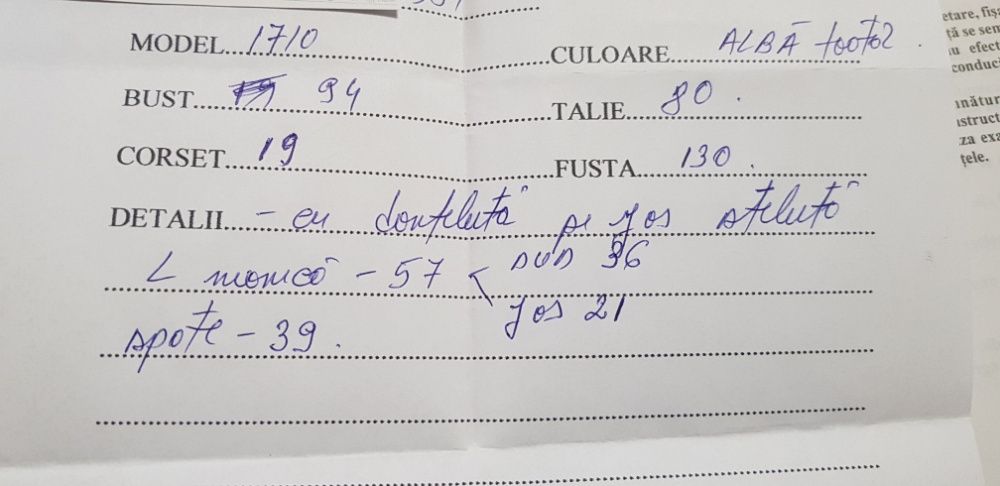 MODEL 1710 CULOARE ALBĂ total
BUST 94 TALIE 80.
CORSET 19 FUSTA 130.
DETALII - cu danteluță pe jos steluță
L mânecă - 57 sus 36
jos 21
spate - 39.
etare, fișa
ță se sem
au efect
conduci
nătur
struct
za exa
țele.